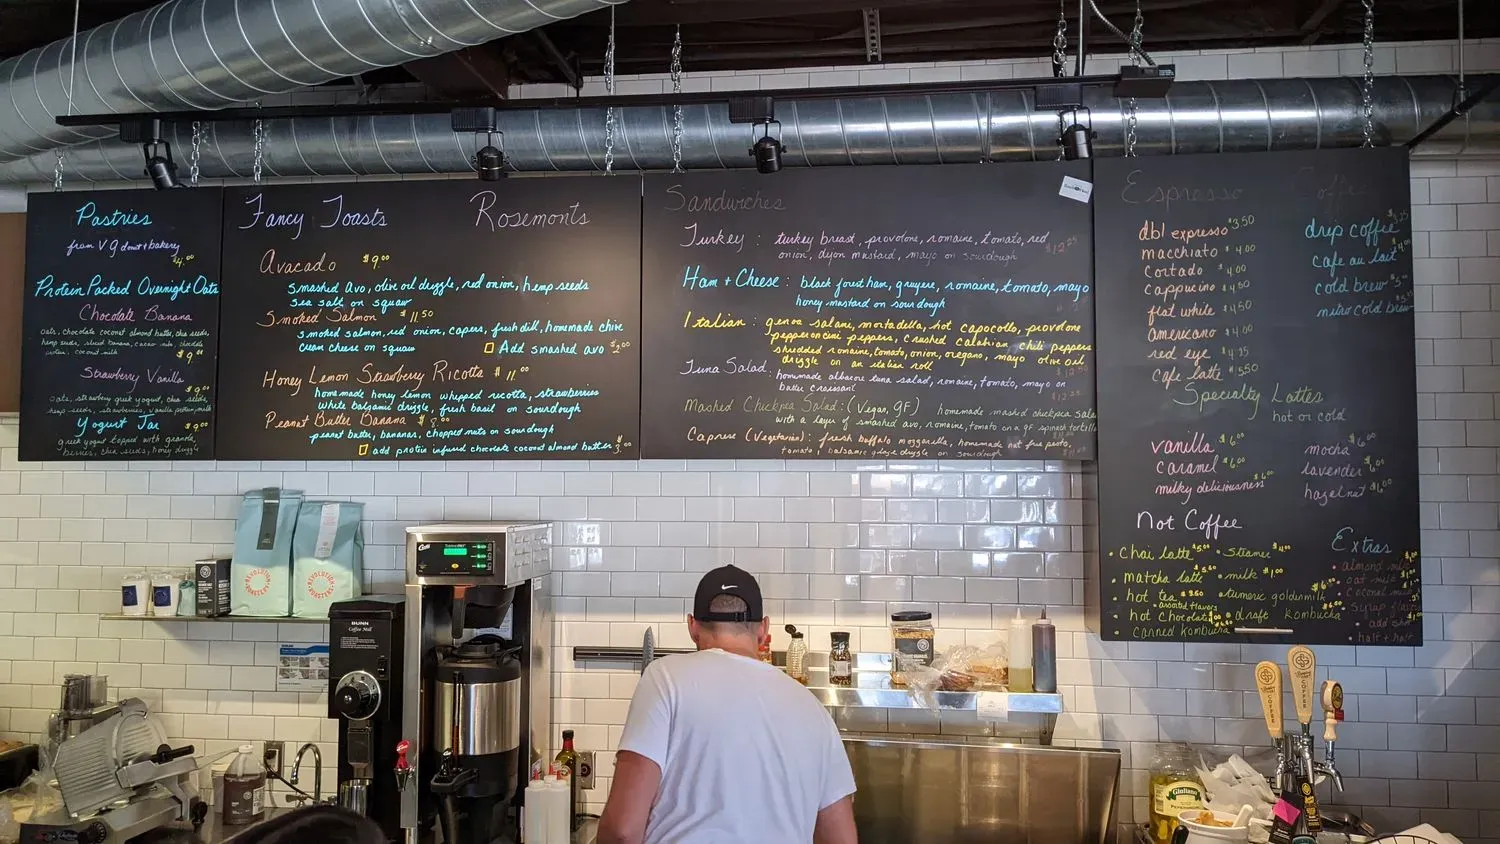 Pastries
from VG donut + bakery
$4.00
Protein Packed Overnight Oats
Chocolate Banana
oats, chocolate coconut almond butter, chia seeds,
hemp seeds, sliced banana, cacao nibs, chocolate
protein, coconut milk $9.00
Strawberry Vanilla
$9.00
oats, strawberry greek yogurt, chia seeds,
hemp seeds, strawberries, vanilla protein, milk
Yogurt Jar $9.00
greek yogurt topped with granola,
berries, chia seeds, honey drizzle
Fancy Toasts Rosemonts
Avacado $9.00
smashed avo, olive oil drizzle, red onion, hemp seeds
sea salt on squaw
Smoked Salmon $11.50
smoked salmon, red onion, capers, fresh dill, homemade chive
cream cheese on squaw
Add smashed avo $2.00
Honey Lemon Strawberry Ricotta $11.00
homemade honey lemon whipped ricotta, strawberries
white balsamic drizzle, fresh basil on sourdough
Peanut Butter Banana
peanut butter, bananas, chopped nuts on sourdough
add protein infused chocolate coconut almond butter
Sandwiches
Turkey : turkey breast, provolone, romaine, tomato, red
onion, dijon mustard, mayo on sourdough
Ham + Cheese : black forest ham, gruyere, romaine, tomato, mayo
honey mustard on sourdough
Italian : genoa salami, mortadella, hot capocollo, provolone
pepperoncini peppers, crushed calabrian chili peppers
shredded romaine, tomato, onion, oregano, mayo olive oil
drizzle on an italian roll
Tuna Salad : homemade albacore tuna salad, romaine, tomato, mayo on
butter croissant
Mashed Chickpea Salad : (Vegan, GF) homemade mashed chickpea salad
with a layer of smashed avo, romaine, tomato on a gf spinach tortilla
Caprese (Vegetarian) : fresh buffalo mozzarella, homemade nut free pesto,
tomato, balsamic glaze drizzle on sourdough
Espresso
dbl expresso $3.50
macchiato $4.00
Cortado $4.00
Cappucino $4.50
flat white $4.50
americano $4.00
red eye $4.25
cafe latte $5.50
Coffee
drip coffee
cafe au lait
cold brew
nitro cold brew
Specialty Lattes
hot or cold
vanilla $6.00
caramel $6.00
milky deliciousness $6.00
mocha $6.00
lavender $6.00
hazelnut $6.00
Not Coffee
• chai latte • steamer $4.00
• matcha latte • milk $1.00
• hot tea $3.50 • tumeric goldenmilk
• assorted flavors
• hot chocolate • draft kombucha
• canned kombucha
Extras
• almond milk
• oat milk
• coconut milk
• syrup flavors
• add shot
• half + half
REVOLUTION ROASTERS
REVOLUTION ROASTERS
BUNN
Coffee Mill
Curtis
Giuliano
COFFEE
COFFEE